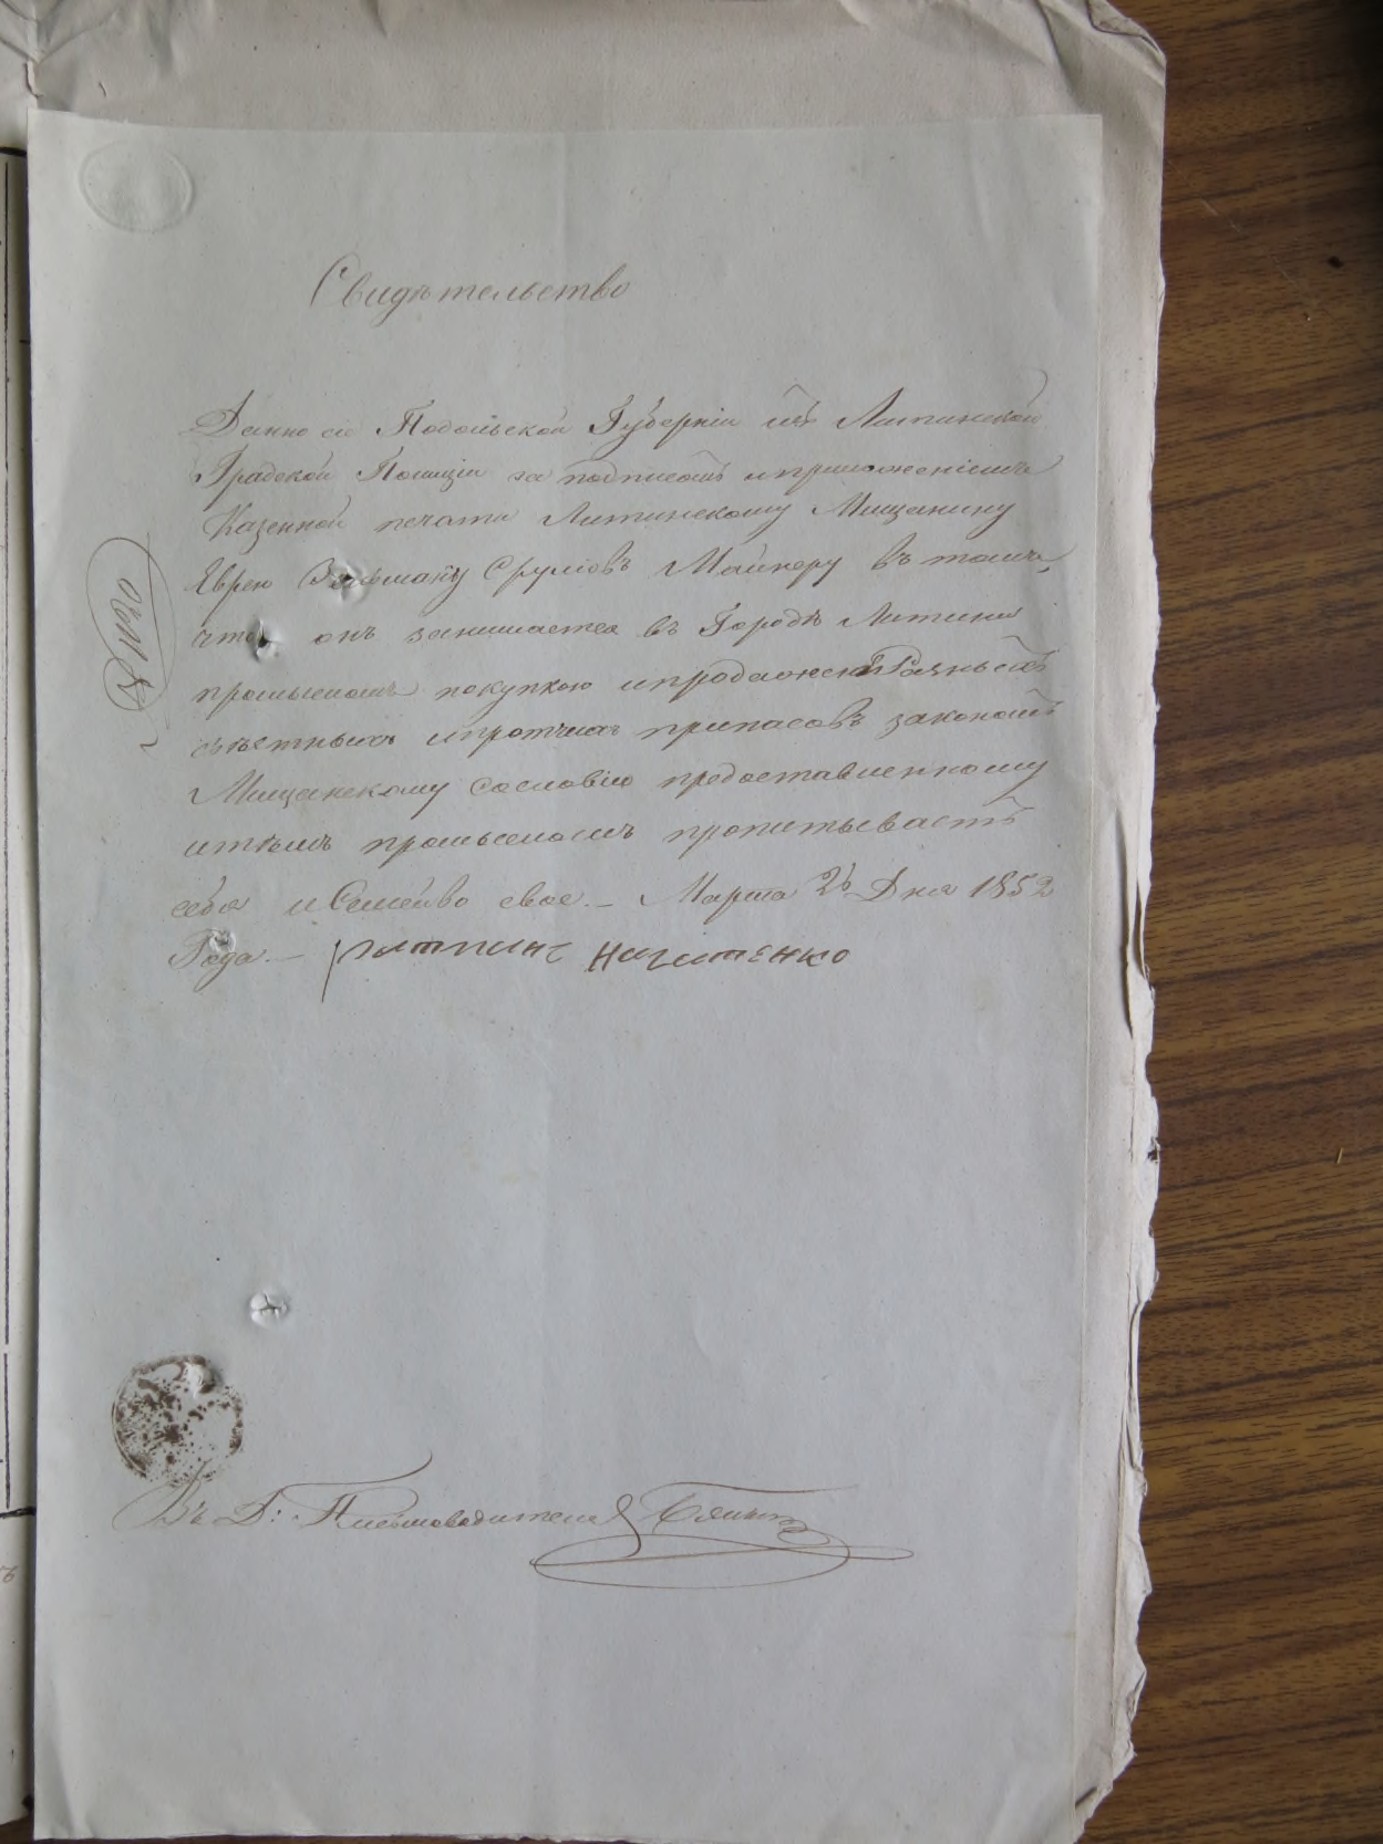 Свидѣтельство
Данно сіе Подольской Губерніи изъ Литинской
Градской Полиціи за подписомъ и приложеніемъ
Казенной печати Литинскому Мищанину
Еврею Сруліовъ Майнеру въ томъ,
что онъ занимается въ Городѣ Литини
промысломъ покупкою и продажею Разныхъ
съѣстныхъ и протчихъ припасовъ закономъ
Мищанскому Сословію предоставленному
и тѣмъ промысломъ пропитываетъ
себя и Семейво свое. – Марта 26 Дня 1852
Года. –
Въ Д: Писмоводителя